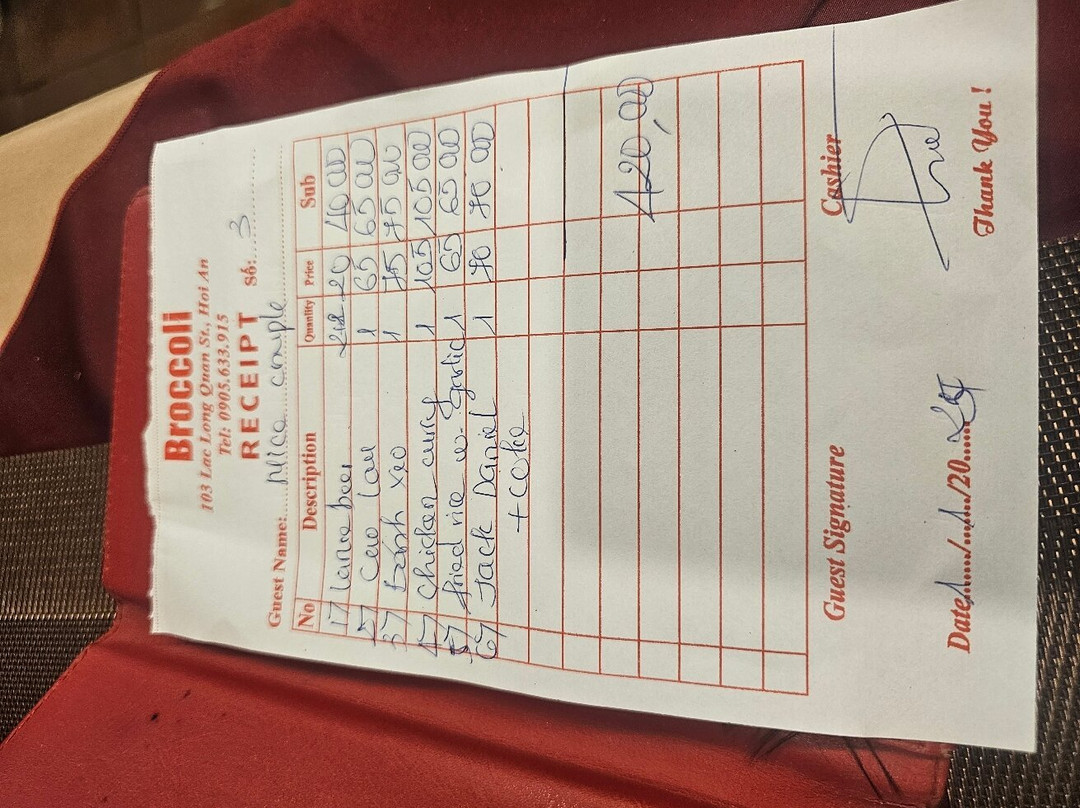 Broccoli
103 Lac Long Quan St., Hoi An
Tel: 0905.633.915
RECEIPT Số: 3
Guest Name: Mica couple
No Description Quantity Price Sub
1/ Larue beer 2 20 40 00
2/ Cao lau 1 65 65 00
3/ Banh xeo 1 75 75 00
4/ Chicken curry 1 105 105 00
5/ fried rice w. garlic 1 65 65 00
6/ Jack Daniel 1 70 70 00
+ coke
420,00
Guest Signature Cashier
Date 1/1/2025
Thank You !